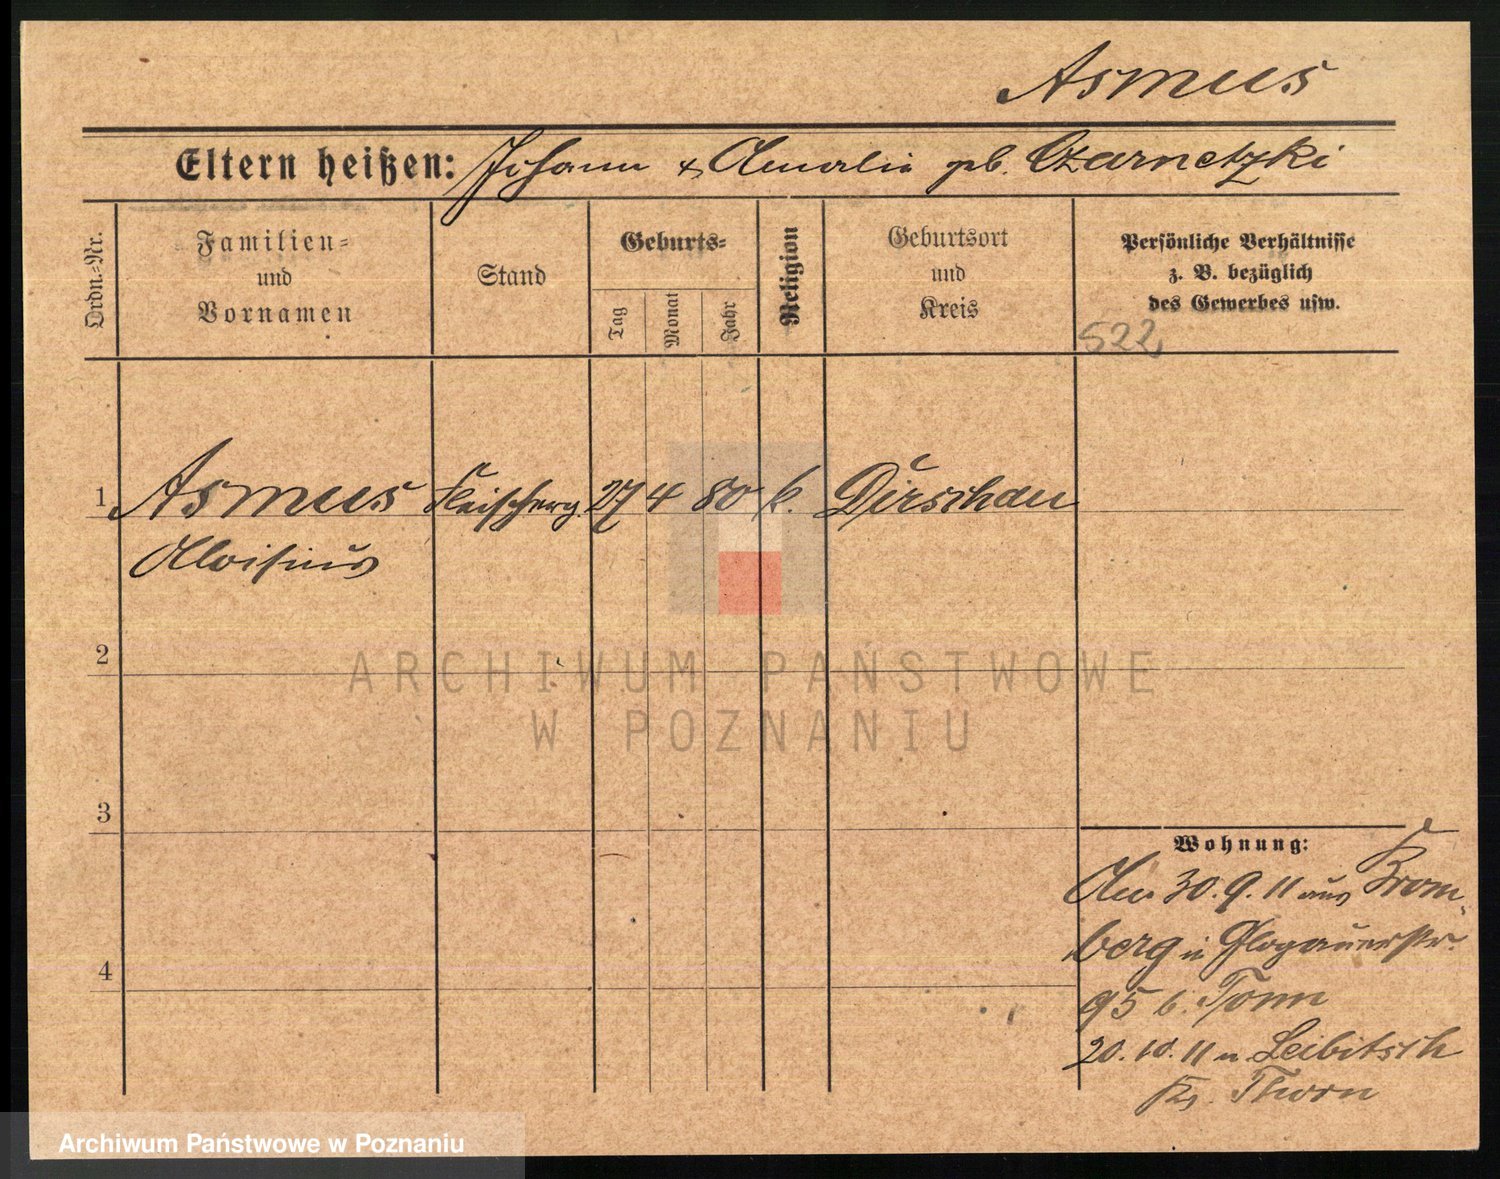 Asmus
Eltern heißen: Johann & Amalie geb. Czarnetzki
Ordn.-Nr.
Familien- und Vornamen
Stand
Geburts-
Tag
Monat
Jahr
Religion
Geburtsort und Kreis
Persönliche Verhältnisse
z. B. bezüglich
des Gewerbes usw.
522
1 Asmus Fleischerg. 27 4 80 k. Dirschau
Aloisius
2
3
4
Wohnung:
30.9.11 aus Brom-
berg in Glogauerstr.
95 b. Tonn
20.10.11 n. Leibitsch
Kr. Thorn
ARCHIWUM PAŃSTWOWE
W POZNANIU
Archiwum Państwowe w Poznaniu